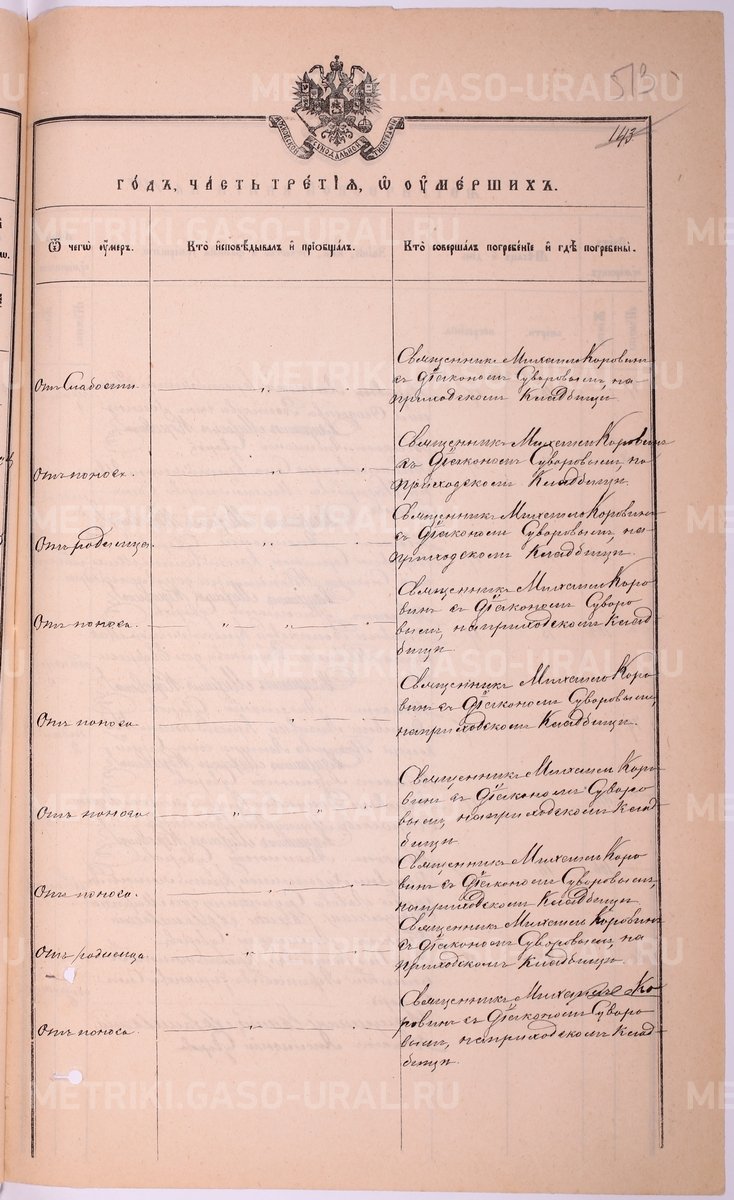 513
143
МОСКОВСКОЙ СѴНОДАЛЬНОЙ ТИПОГРАФІИ
ГОДЪ, ЧАСТЬ ТРЕТІЯ, Ѡ ОУМЕРШИХЪ.
Ѿ чегѡ оумеръ.
Кто исповѣдывалъ и пріобщалъ.
Кто совершалъ погребеніе и гдѣ погребены.
Отъ слабости
Священникъ Михаилъ Коровинъ
съ діакономъ Суворовымъ, на
приходскомъ кладбищѣ.
Отъ поноса.
Священникъ Михаилъ Коровинъ
съ діакономъ Суворовымъ, на
приходскомъ кладбищѣ.
Отъ родимца
Священникъ Михаилъ Коровинъ
съ діакономъ Суворовымъ, на
приходскомъ кладбищѣ.
Отъ поноса.
Священникъ Михаилъ Коро
винъ съ діакономъ Суворо
вымъ, на приходскомъ клад
бищѣ.
Отъ поноса
Священникъ Михаилъ Коро
винъ съ діакономъ Суворовымъ,
на приходскомъ кладбищѣ.
Отъ поноса
Священникъ Михаилъ Коро
винъ съ діакономъ Суворо
вымъ, на приходскомъ клад
бищѣ.
Отъ поноса.
Священникъ Михаилъ Коро
винъ съ діакономъ Суворовымъ,
на приходскомъ кладбищѣ.
Отъ родимца
Священникъ Михаилъ Коровинъ
съ діакономъ Суворовымъ, на
приходскомъ кладбищѣ.
Отъ поноса.
Священникъ Михаилъ Ко
ровинъ съ діакономъ Суворо
вымъ, на приходскомъ клад-
бищѣ.
METRIKI.GASO-URAL.RU